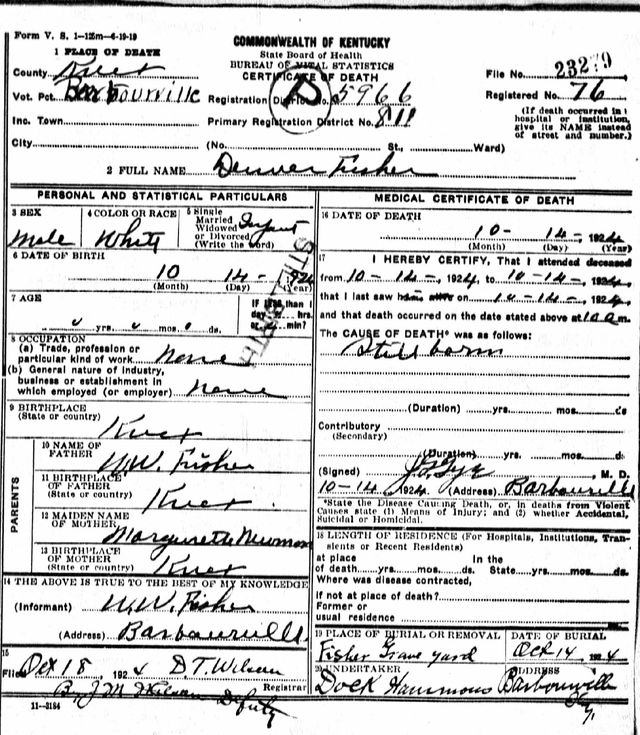 Form V. S. 1—125m—6-19-19
COMMONWEALTH OF KENTUCKY
State Board of Health
BUREAU OF VITAL STATISTICS
CERTIFICATE OF DEATH
1 PLACE OF DEATH
County Knox
Vot. Pct. Barbourville
Inc. Town
City
File No. 23279
Registered No. 76
Registration District No. 5966
Primary Registration District No. 811
(If death occurred in hospital or institution, give its NAME instead of street and number.)
(No. St., Ward)
2 FULL NAME Denver Fisher
PERSONAL AND STATISTICAL PARTICULARS
3 SEX Male
4 COLOR OR RACE White
5 Single Married Widowed or Divorced (Write the word) Infant
STILLBIRTH
6 DATE OF BIRTH
10 14 - 1924
(Month) (Day) (Year)
7 AGE
yrs. mos. ds.
If less than 1 day hrs. or min?
8 OCCUPATION
(a) Trade, profession or particular kind of work None
(b) General nature of industry, business or establishment in which employed (or employer) None
9 BIRTHPLACE (State or country) Knox
PARENTS
10 NAME OF FATHER W.W. Fisher
11 BIRTHPLACE OF FATHER (State or country) Knox
12 MAIDEN NAME OF MOTHER Margurette
13 BIRTHPLACE OF MOTHER (State or country) Knox
14 THE ABOVE IS TRUE TO THE BEST OF MY KNOWLEDGE
(Informant) W.W. Fisher
(Address) Barbourville
15
Filed Oct 18, 1924 D.T. Wilson
Registrar
By J M Deputy
11—3184
MEDICAL CERTIFICATE OF DEATH
16 DATE OF DEATH
10 - 14 -, 1924
(Month) (Day) (Year)
17 I HEREBY CERTIFY, That I attended deceased
from 10-14-, 1924, to 10-14-, 1924
that I last saw him alive on 10-14-, 1924,
and that death occurred on the date stated above at 10 a m.
The CAUSE OF DEATH* was as follows:
Still born
(Duration) yrs. mos. ds
Contributory
(Secondary)
(Duration) yrs. mos. ds.
(Signed) M. D.
10-14, 1924 (Address) Barbourville
*State the Disease Causing Death, or, in deaths from Violent Causes state (1) Means of Injury; and (2) whether Accidental, Suicidal or Homicidal.
18 LENGTH OF RESIDENCE (For Hospitals, Institutions, Transients or Recent Residents)
at place of death yrs. mos. ds. In the State yrs. mos. ds.
Where was disease contracted,
if not at place of death?
Former or usual residence
19 PLACE OF BURIAL OR REMOVAL DATE OF BURIAL
Fisher Grave yard Oct 14, 1924
20 UNDERTAKER ADDRESS
Dock Hammons Barbourville
Ky.